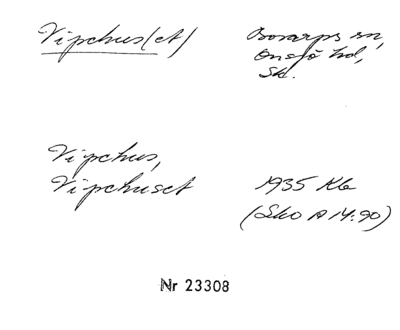 Vipehus(et)
Bosarps sn,
Onsjö hd,
Sk.
Vipehus,
Vipehuset
1935 Kb
(Sko A 14:90)
Nr 23308